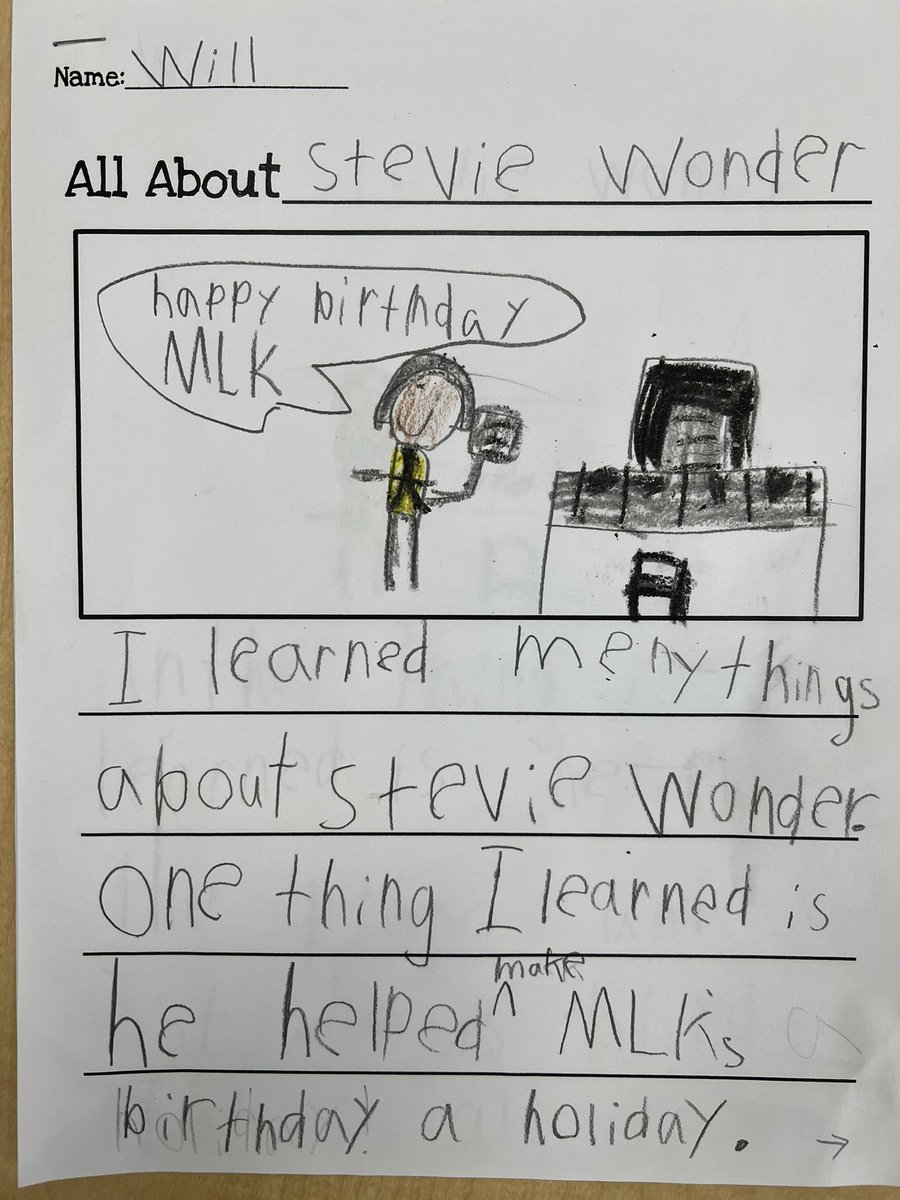 Name: Will
All About Stevie Wonder
happy birthday
MLK
I learned meny things
about Stevie Wonder.
One thing I learned is
he helped ^ make MLK's
birthday a holiday. →